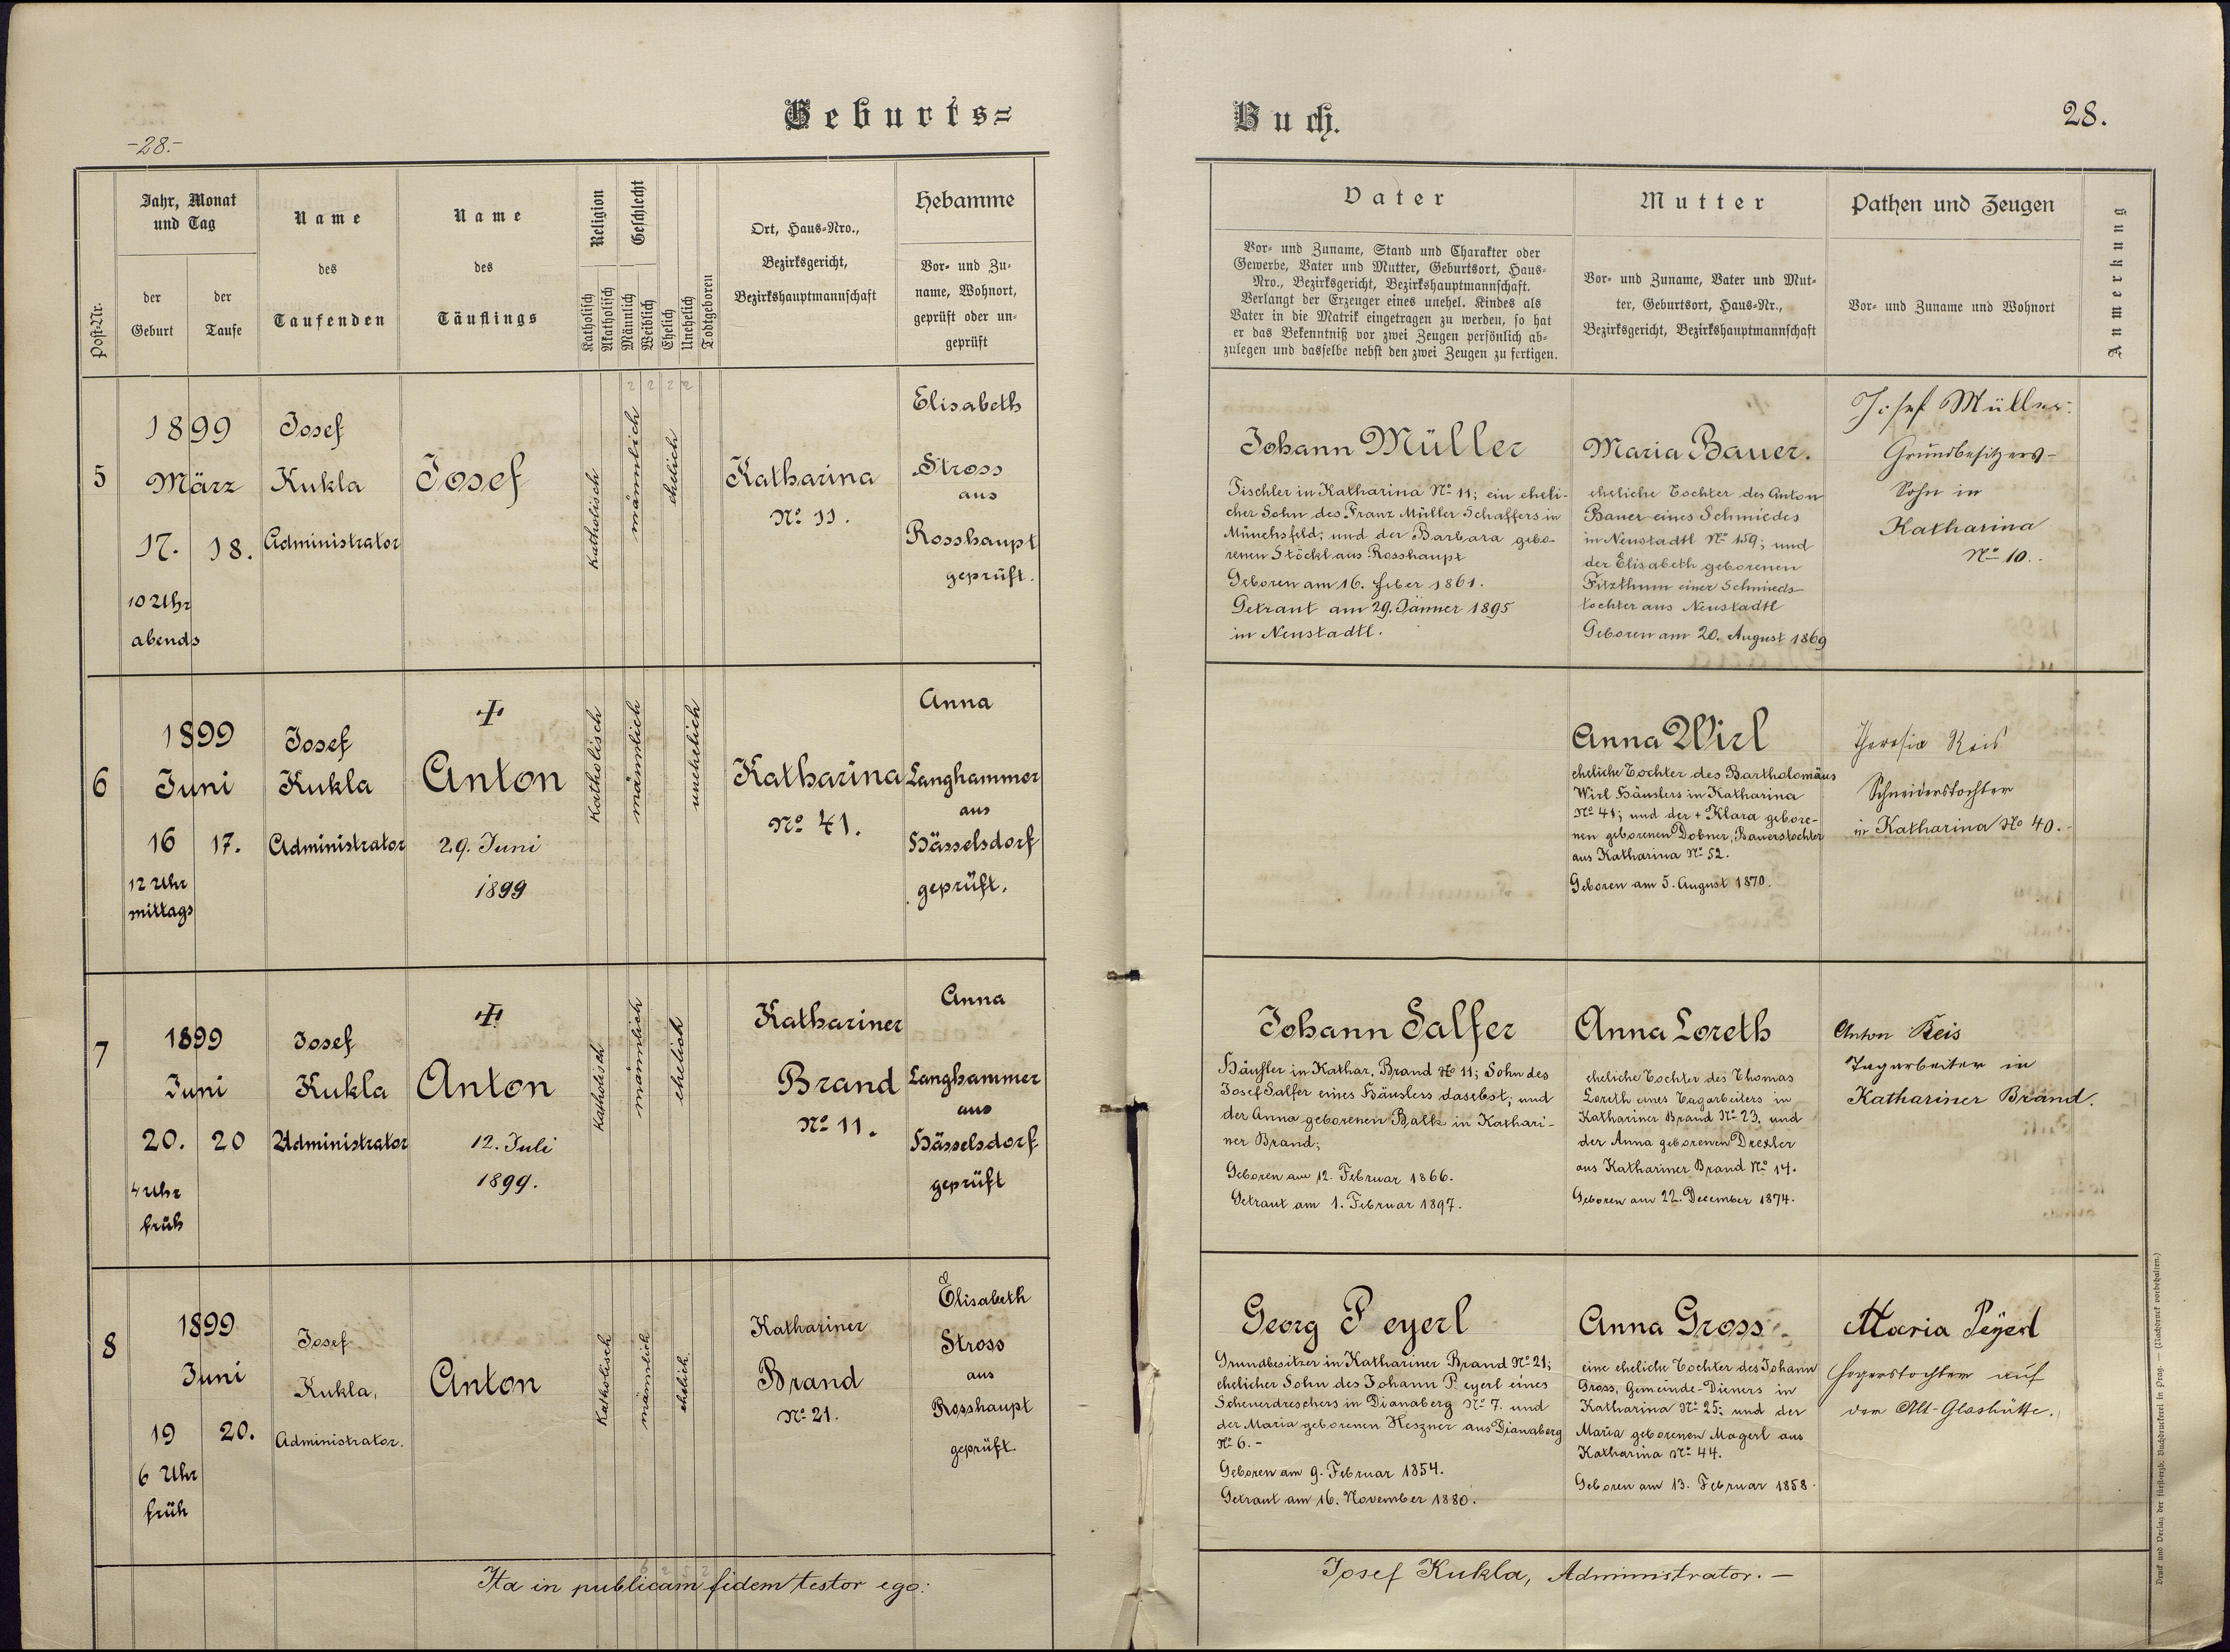 Geburts=
-28.-
Post-Nr.
Jahr, Monat
und Tag
der
Geburt
der
Taufe
Name
des
Taufenden
Name
des
Täuflings
Religion
Katholisch
Akatholisch
Geschlecht
Männlich
Weiblich
Ehelich
Unehelich
Todtgeboren
Ort, Haus=Nro.,
Bezirksgericht,
Bezirkshauptmannschaft
Hebamme
Vor= und Zu=
name, Wohnort,
geprüft oder un=
geprüft
5
1899
März
17. 18.
10 Uhr
abends
Josef
Kukla
Administrator
Josef
katholisch
männlich
ehelich
Katharina
No 11.
Elisabeth
Stross
aus
Rosshaupt
geprüft.
6
1899
Juni
16 17.
12 Uhr
mittags
Josef
Kukla
Administrator
Anton
29. Juni
1899
katholisch
männlich
unehelich
Katharina
No 41.
Anna
Langhammer
aus
Hässelsdorf
geprüft.
7
1899
Juni
20. 20
4 Uhr
früh
Josef
Kukla
Administrator
Anton
12. Juli
1899.
katholisch
männlich
ehelich
Kathariner
Brand
No 11.
Anna
Langhammer
aus
Hässelsdorf
geprüft
8
1899
Juni
19 20.
6 Uhr
früh
Josef
Kukla,
Administrator.
Anton
katholisch
männlich
ehelich.
Kathariner
Brand
No 21.
Elisabeth
Stross
aus
Rosshaupt
geprüft.
Ita in publicam fidem testor ego:
Buch.
28.
Vater
Vor= und Zuname, Stand und Charakter oder
Gewerbe, Vater und Mutter, Geburtsort, Haus=
Nro., Bezirksgericht, Bezirkshauptmannschaft.
Verlangt der Erzeuger eines unehel. Kindes als
Vater in die Matrik eingetragen zu werden, so hat
er das Bekenntniß vor zwei Zeugen persönlich ab=
zulegen und dasselbe nebst den zwei Zeugen zu fertigen.
Mutter
Vor= und Zuname, Vater und Mut=
ter, Geburtsort, Haus=Nr.,
Bezirksgericht, Bezirkshauptmannschaft
Pathen und Zeugen
Vor= und Zuname und Wohnort
Anmerkung
Johann Müller
Tischler in Katharina No 11; ein eheli-
cher Sohn des Franz Müller Schaffers in
Münchsfeld; und der Barbara gebo-
renen Stöckl aus Rosshaupt
Geboren am 16. feber 1861.
Getraut am 29. Jänner 1895
in Neustadtl.
Maria Bauer.
eheliche Tochter des Anton
Bauer eines Schmiedes
in Neustadtl No 159; und
der Elisabeth geborenen
Fitzthum einer Schmieds-
tochter aus Neustadtl
Geboren am 20. August 1869
Josef Müller.
Grundbesitzers-
Sohn in
Katharina
No 10.
Anna Wirl
eheliche Tochter des Bartholomäus
Wirl Häuslers in Katharina
No 41; und der + Klara gebore-
nen geborenen Dobner, Bauerstochter
aus Katharina No 52.
Geboren am 5. August 1870.
Theresia Reis
Schneiderstochter
in Katharina No 40.
Johann Salfer
Häusler in Kathar. Brand No 11; Sohn des
Josef Salfer eines Häuslers daselbst; und
der Anna geborenen Balk in Kathari-
ner Brand;
Geboren am 12. Februar 1866.
Getraut am 1. Februar 1897.
Anna Loreth
eheliche Tochter des Thomas
Loreth eines Tagarbeiters in
Kathariner Brand No 23. und
der Anna geborenen Drexler
aus Kathariner Brand No 14.
Geboren am 22. December 1874.
Anton Reis
Tagarbeiter in
Kathariner Brand.
Georg Peyerl
Grundbesitzer in Kathariner Brand No 21;
ehelicher Sohn des Johann Peyerl eines
Scheuerdreschers in Dianaberg No 7. und
der Maria geborenen Heszner aus Dianaberg
No 6.-
Geboren am 9. Februar 1854.
Getraut am 16. November 1880.
Anna Gross.
eine eheliche Tochter des Johann
Gross, Gemeinde-Dieners in
Katharina No 25; und der
Maria geborenen Magerl aus
Katharina No 44.
Geboren am 13. Februar 1858.
Maria Peyerl
Hegerstochter auf
der Alt-Glashütte.
Josef Kukla, Administrator.—
Druck und Verlag der fürsterzb. Buchdruckerei in Prag. — (Nachdruck vorbehalten.)